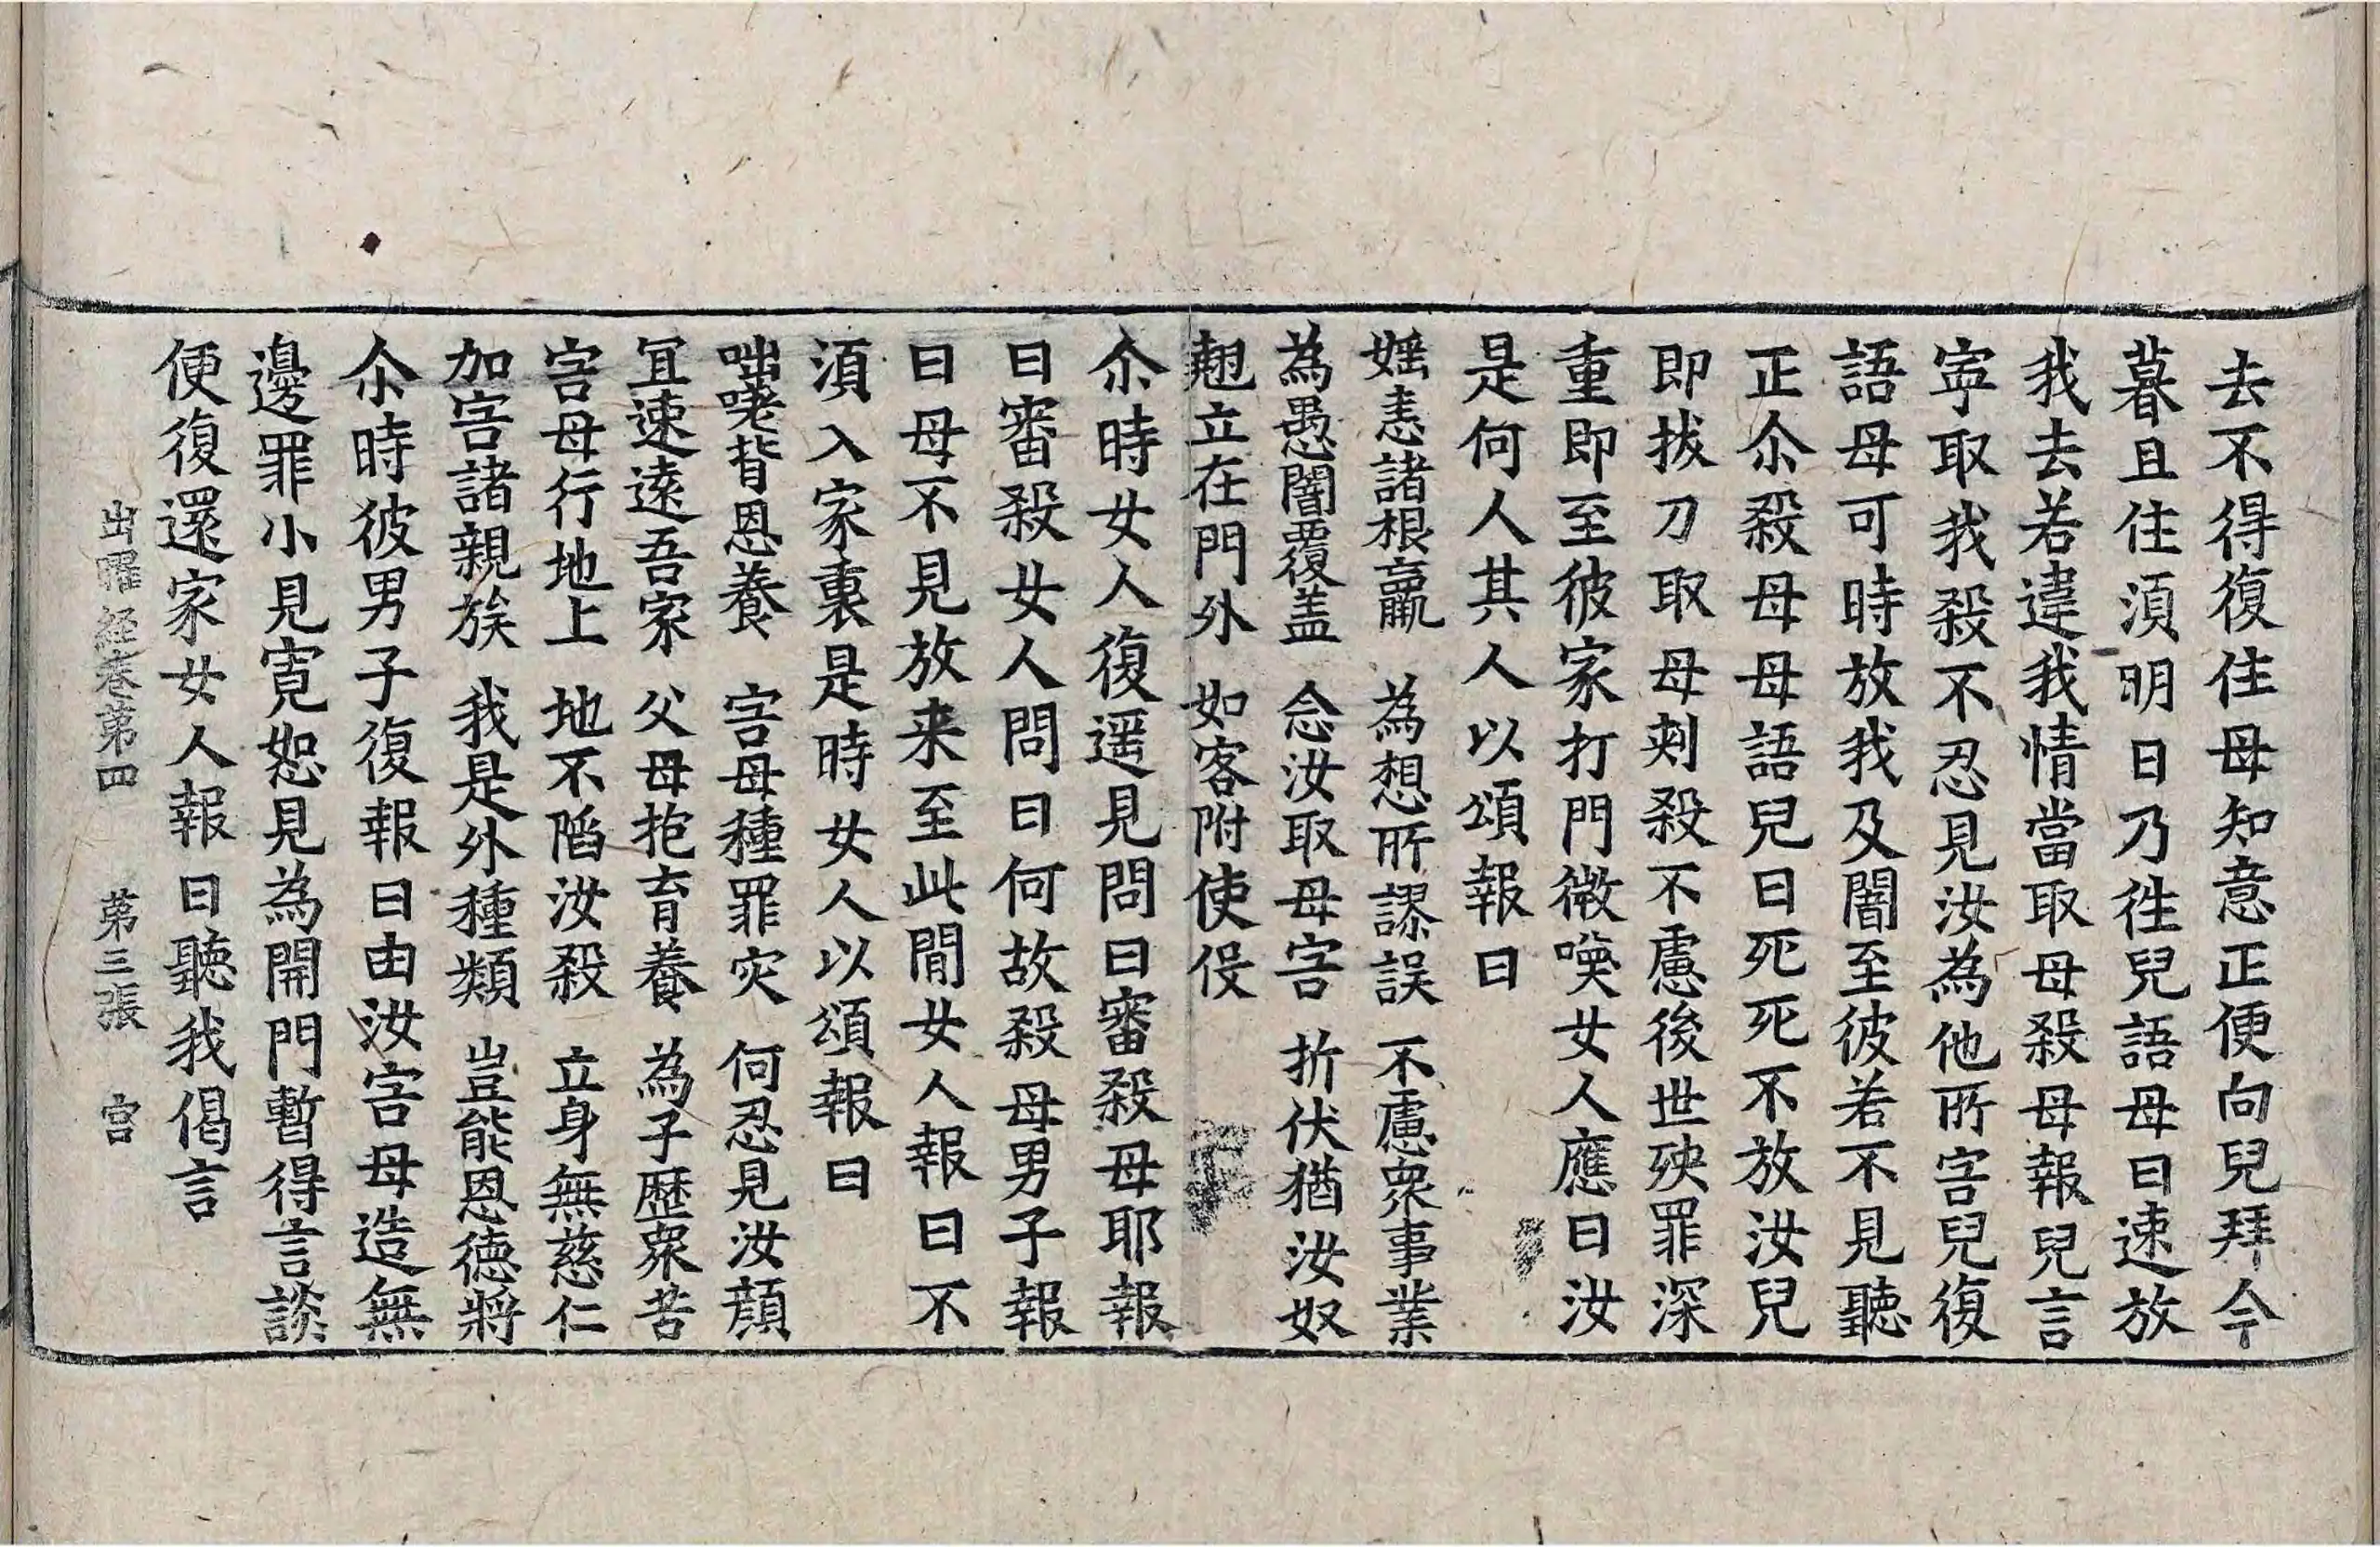 去不得復住母知意正便向兒拜今
暮且住湏明日乃徃兒語母曰速放
我去若違我情當取母殺母報兒言
寕取我殺不忍見汝為他所害兒復
語母可時放我及闇至彼若不見聽
正尒殺母母語兒曰死死不放汝兒
即拔刀取母刾殺不慮後世殃罪深
重即至彼家打門微喚女人應曰汝
是何人其人以頌報曰
婬恚諸根羸　為想所謬誤　不慮衆事業
為愚闇覆盖　念汝取母害　折伏猶汝奴
翹立在門外　如客附使伇
尒時女人復遥見問曰審殺母耶報
曰審殺女人問曰何故殺母男子報
曰母不見放来至此閒女人報曰不
湏入家裏是時女人以頌報曰
咄嘊背恩養　害母種罪灾　何忍見汝顔
冝速遠吾家　父母抱育養　為子歴衆苦
害母行地上　地不陷汝殺　立身無慈仁
加害諸親族　我是外種類　豈能恩德將
尒時彼男子復報曰由汝害母造無
邊罪小見寛恕見為開門暫得言談
便復還家女人報曰聽我偈言
出曜経卷第四　第三張　宫